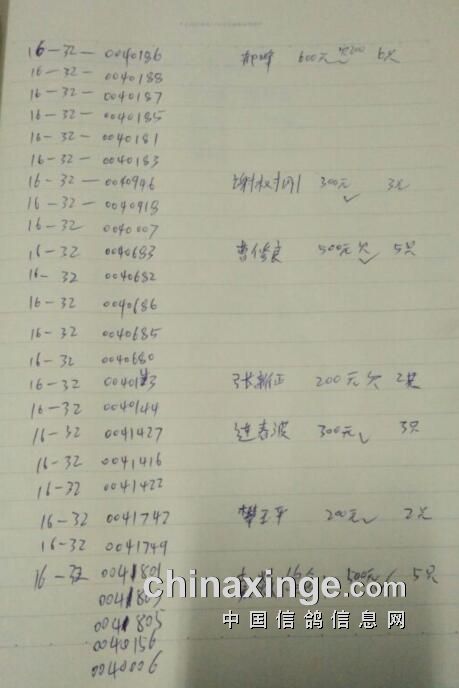 16-32-0040186 600元 欠200 6只
16-32-0040188
16-32-0040187
16-32-0040185
16-32-0040181
16-32-0040183
16-32-0040946 谢权刚 300元 3只
16-32-0040918
16-32 0040007
16-32 0040683 曹俊良 500元欠 5只
16-32 0040682
16-32 0040686
16-32 0040685
16-32 0040680
16-32 张新正 200元欠 2只
16-32 0040144
16-32 0041427 连春波 300元 3只
16-32 0041416
16-32 0041422
16-32 0041747 樊玉平 200元 2只
16-32 0041749
16-32 0041801 500元 5只
0041805
0040156
0040006
chinaxinge.com
中国信鸽信息网